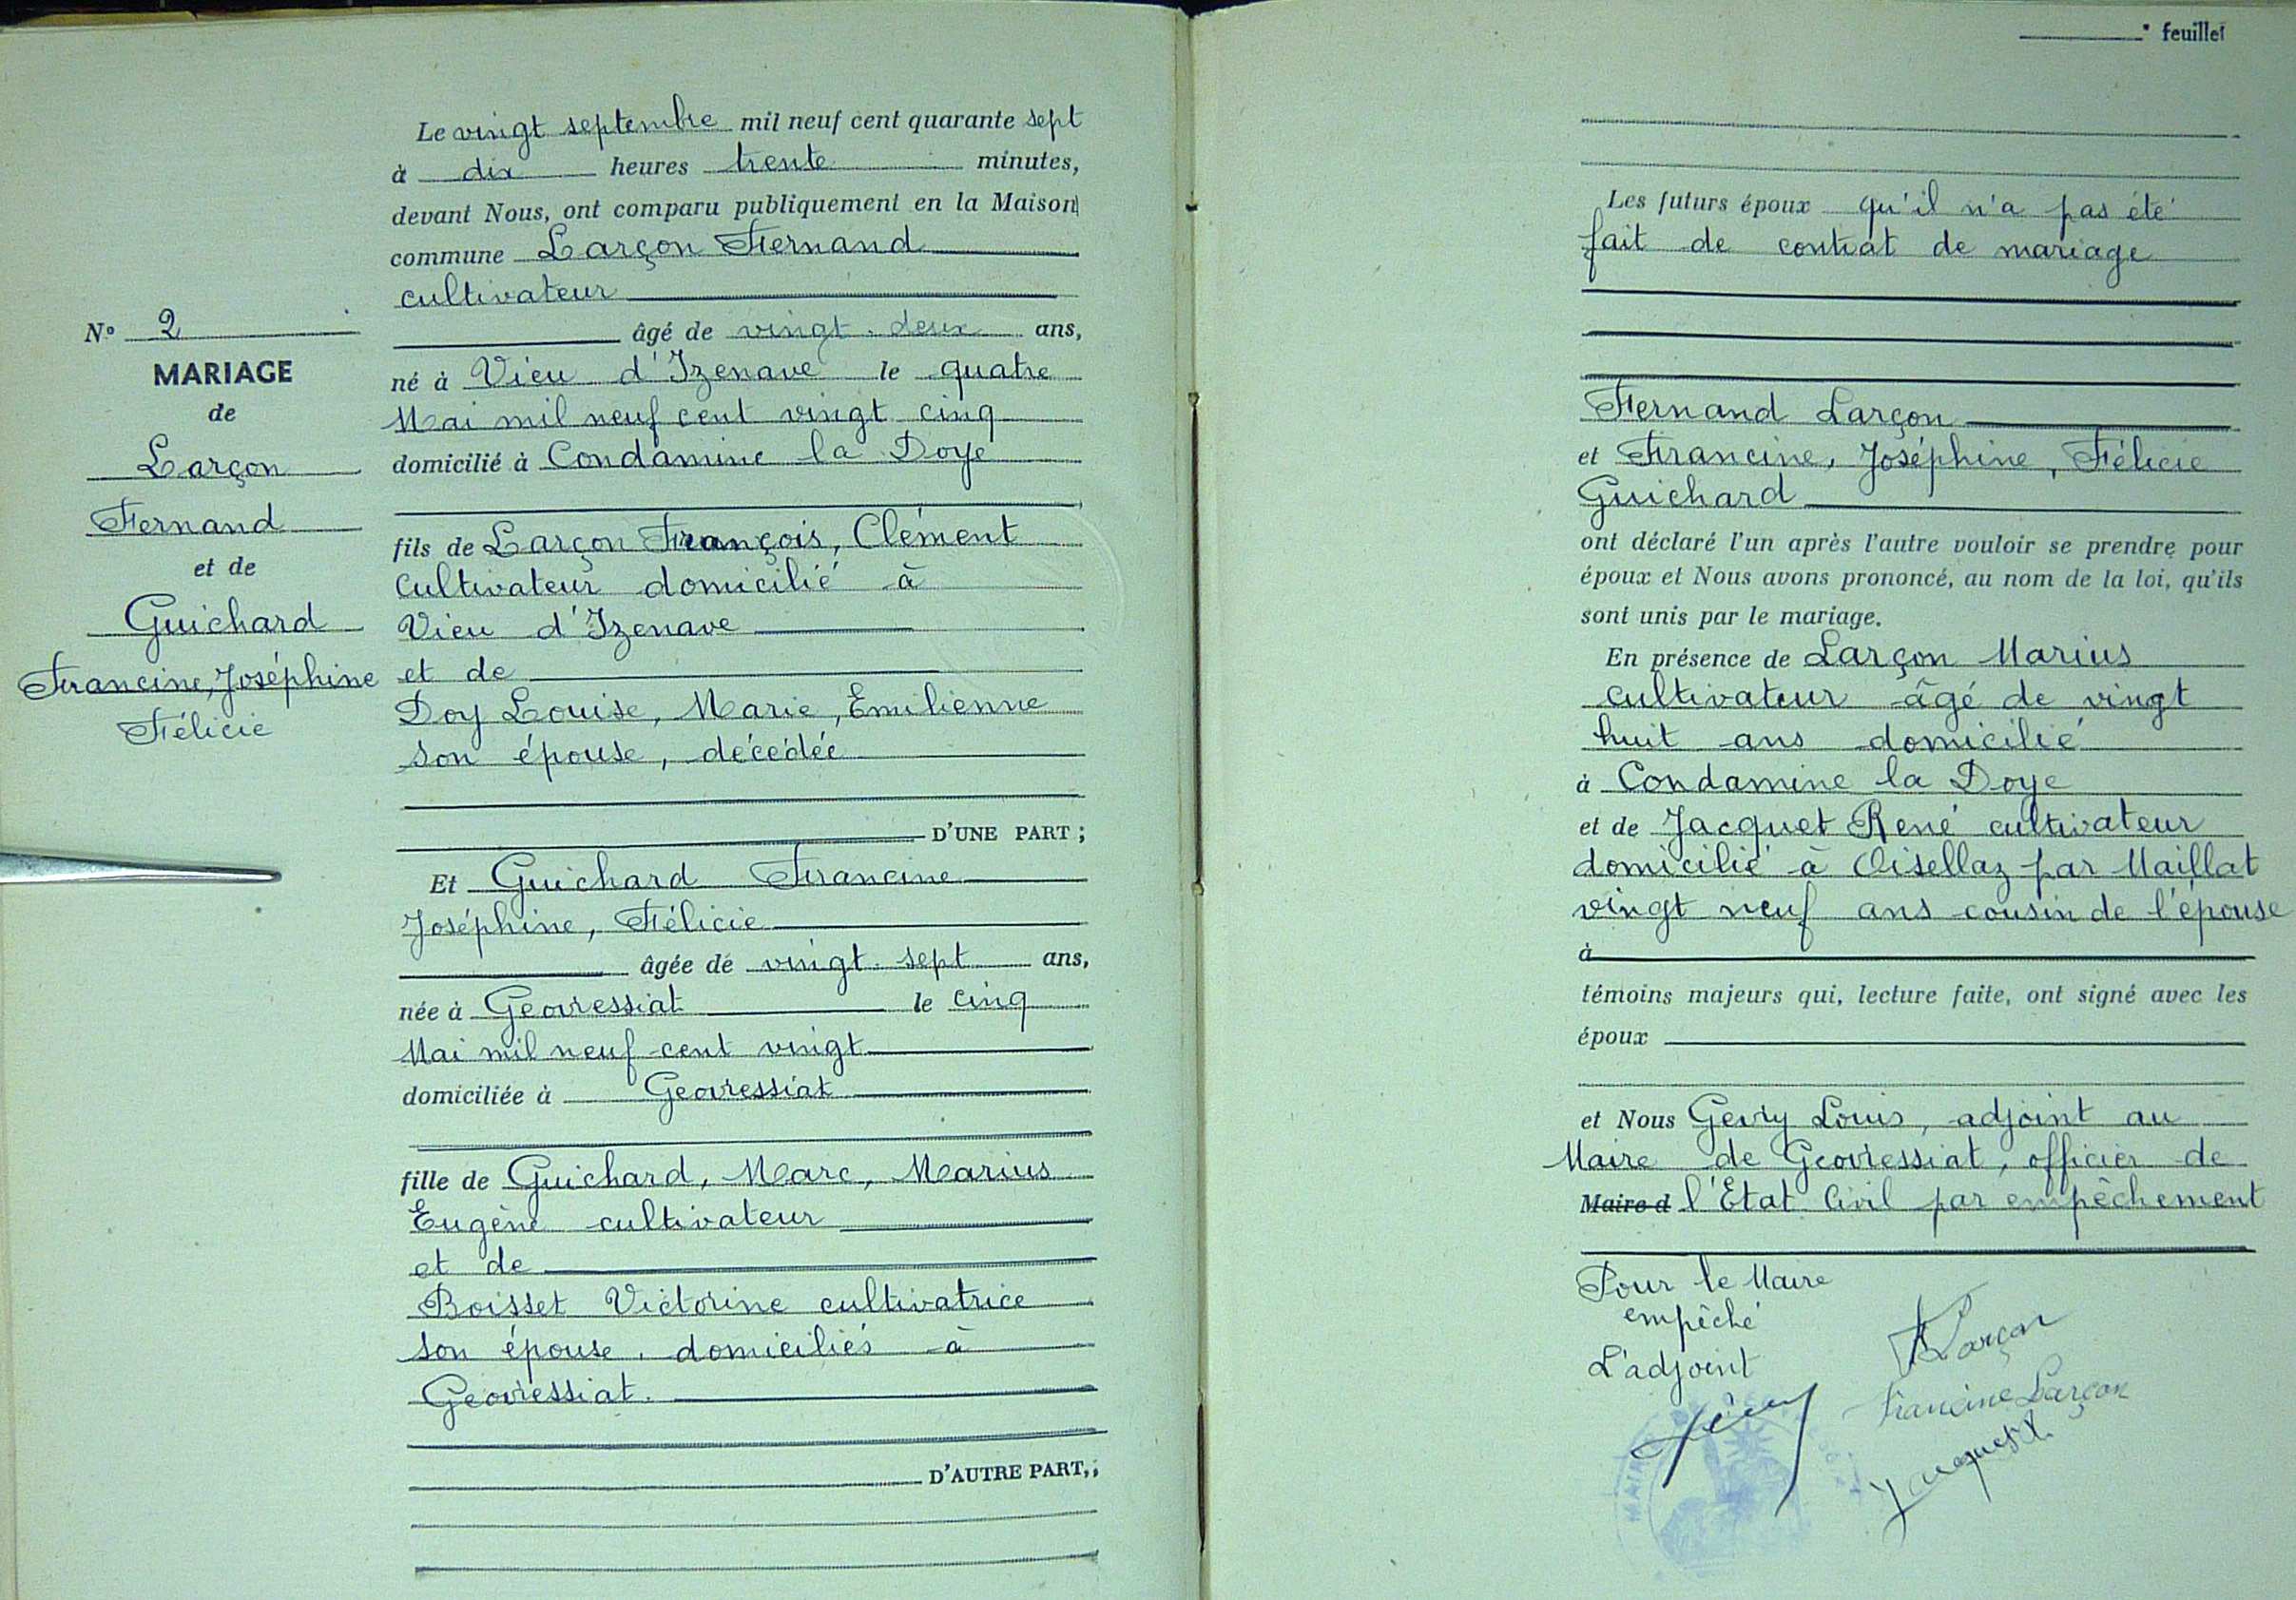 N° 2
MARIAGE
de
Larçon
Fernand
et de
Guichard
Francine, Joséphine
Félicie
Le vingt septembre mil neuf cent quarante sept
à dix heures trente minutes,
devant Nous, ont comparu publiquement en la Maison
commune Larçon Fernand
cultivateur
âgé de vingt-deux ans,
né à Vieu d'Izenave le quatre
Mai mil neuf cent vingt cinq
domicilié à Condamine la Doye
fils de Larçon François, Clément
cultivateur domicilié à
Vieu d'Izenave
et de
Doy Louise, Marie, Emilienne
son épouse, décédée
D'UNE PART ;
Et Guichard Francine
Joséphine, Félicie
âgée de vingt-sept ans,
née à Geovressiat le cinq
Mai mil neuf cent vingt
domiciliée à Geovressiat
fille de Guichard, Marc, Marius
Eugène cultivateur
et de
Boisset Victorine cultivatrice
son épouse, domiciliés à
Geovressiat.
D'AUTRE PART, ;
° feuillet
Les futurs époux qu'il n'a pas été
fait de contrat de mariage
Fernand Larçon
et Francine, Joséphine, Félicie
Guichard
ont déclaré l'un après l'autre vouloir se prendre pour
époux et Nous avons prononcé, au nom de la loi, qu'ils
sont unis par le mariage.
En présence de Larçon Marius
cultivateur âgé de vingt
huit ans domicilié
à Condamine la Doye
et de Jacquet René cultivateur
domicilié à Oisellaz par Maillat
vingt neuf ans cousin de l'épouse
à
témoins majeurs qui, lecture faite, ont signé avec les
époux
et Nous Gevry Louis, adjoint au
Maire de Geovressiat, officier de
Maire d l'Etat Civil par empêchement
Pour le Maire
empêché
L'adjoint
F Larçon
Francine Larçon
Jacquet R.
MAIRIE